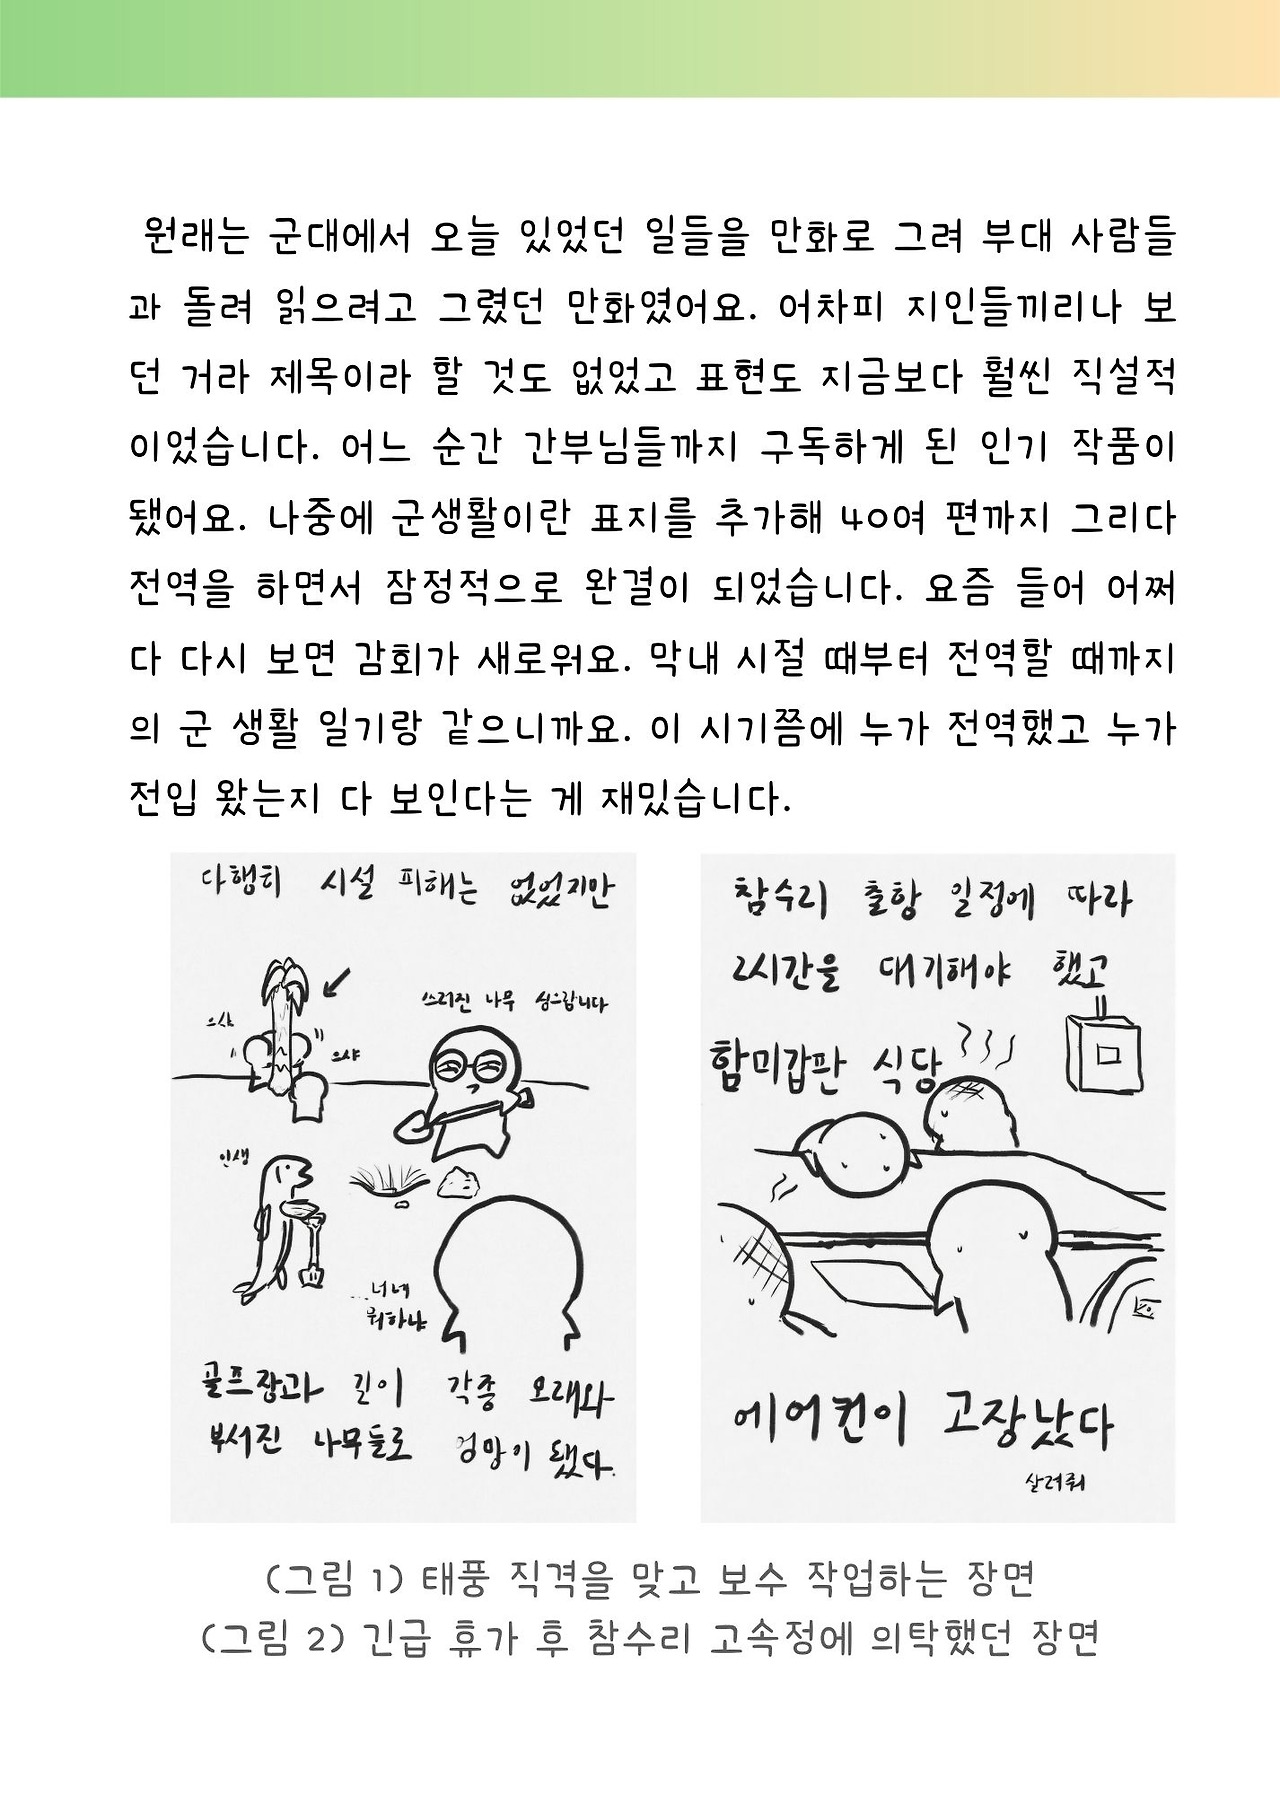 원래는 군대에서 오늘 있었던 일들을 만화로 그려 부대 사람들
과 돌려 읽으려고 그렸던 만화였어요. 어차피 지인들끼리나 보
던 거라 제목이라 할 것도 없었고 표현도 지금보다 훨씬 직설적
이었습니다. 어느 순간 간부님들까지 구독하게 된 인기 작품이
됐어요. 나중에 군생활이란 표지를 추가해 40여 편까지 그리다
전역을 하면서 잠정적으로 완결이 되었습니다. 요즘 들어 어쩌
다 다시 보면 감회가 새로워요. 막내 시절 때부터 전역할 때까지
의 군 생활 일기랑 같으니까요. 이 시기쯤에 누가 전역했고 누가
전입 왔는지 다 보인다는 게 재밌습니다.
다행히 시설 피해는 없었지만
쓰러진 나무 심으랍니다
으샤
으샤
인생
...너네
뭐하냐
골프장과 길이 각종 모래와
부서진 나무들로 엉망이 됐다.
참수리 출항 일정에 따라
2시간을 대기해야 했고
함미갑판 식당
에어컨이 고장났다
살려줘
(그림 1) 태풍 직격을 맞고 보수 작업하는 장면
(그림 2) 긴급 휴가 후 참수리 고속정에 의탁했던 장면